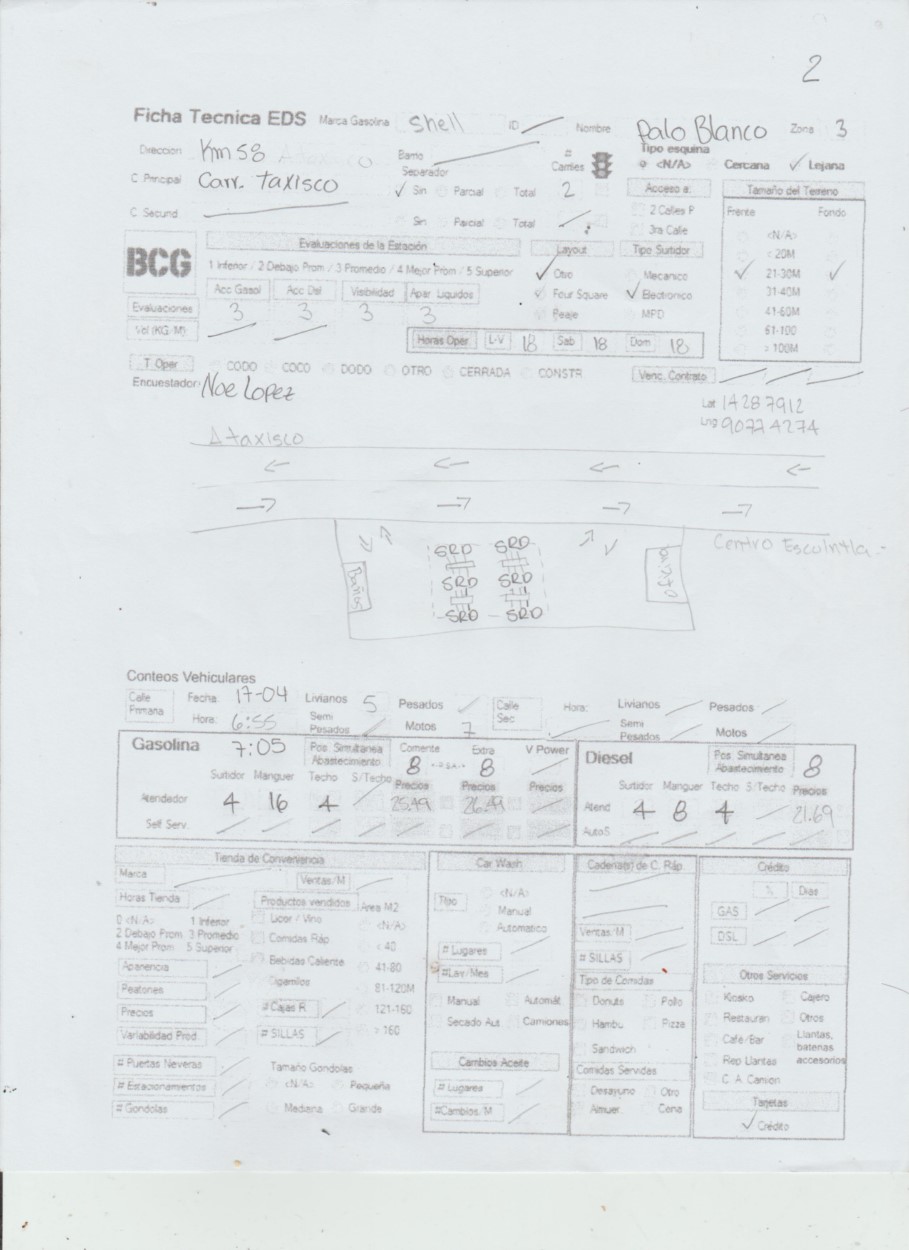 2
Ficha Tecnica EDS Marca Gasolina Shell ID Nombre Palo Blanco Zona 3
Direccion Km 58 Barrio # Carriles Tipo esquina
Separador <N/A> Cercana Lejana
C Principal Carr. Taxisco Sin Parcial Total 2 Acceso a: Tamaño del Terreno
C Secund Sin Parcial Total 2 Calles P Frente Fondo
3ra Calle <N/A>
BCG Evaluaciones de la Estación Layout Tipo Surtidor < 20M
1 Inferior / 2 Debajo Prom / 3 Promedio / 4 Mejor Prom / 5 Superior Otro Mecanico 21-30M
Acc Gasol Acc Dsl Visibilidad Apar Liquidos Four Square Electronico 31-40M
Evaluaciones 3 3 3 3 Peaje MPD 41-60M
Vol (KG/M) Horas Oper. L-V 18 Sab 18 Dom 18 61-100
> 100M
T Oper CODO COCO DODO OTRO CERRADA CONSTR Venc. Contrato
Encuestador: Noe Lopez
Lat 14287912
Lng 90774274
A taxisco
Centro Escuintla
SRD SRD
Baños SRD SRD Oficina
SRD SRD
Conteos Vehiculares
Calle Primaria Fecha: 17-04 Livianos 5 Pesados Calle Sec Hora: Livianos Pesados
Hora: 6:55 Semi Pesados Motos 7 Semi Pesados Motos
Gasolina 7:05 Pos. Simultanea Abastecimiento Corriente 8 Extra 8 V Power Diesel Pos. Simultanea Abastecimiento 8
Surtidor Manguer Techo S/Techo Precios Precios Precios Surtidor Manguer Techo S/Techo Precios
Atendedor 4 16 4 25.49 26.49 Atend 4 8 4 21.69
Self Serv. AutoS
Tienda de Convivencia Car Wash Cadena(s) de C. Ráp Crédito
Marca Ventas/M % Dias
Horas Tienda Productos vendidos Area M2 Tipo <N/A> GAS
0 <N/A> 1 Inferior Licor / Vino <N/A> Manual
2 Debajo Prom 3 Promedio Comidas Ráp < 40 Automatico Ventas/M DSL
4 Mejor Prom 5 Superior Bebidas Caliente 41-80 # Lugares # SILLAS
Apariencia Cigarrillos 81-120M #Lav/Mes Tipo de Comidas Otros Servicios
Peatones # Cajas R 121-160 Manual Automát Donuts Pollo Kiosko Cajero
Precios # SILLAS > 160 Secado Aut Camiones Hambu Pizza Restauran Otros
Variabilidad Prod Sandwich Cafe/Bar Llantas, baterias accesorios
# Puertas Neveras Tamaño Gondolas Cambios Aceite Comidas Servidas Rep Llantas
# Estacionamientos <N/A> Pequeña # Lugares Desayuno Otro C. A. Camion
# Gondolas Mediana Grande #Cambios/M Almuer. Cena Tarjetas
Crédito